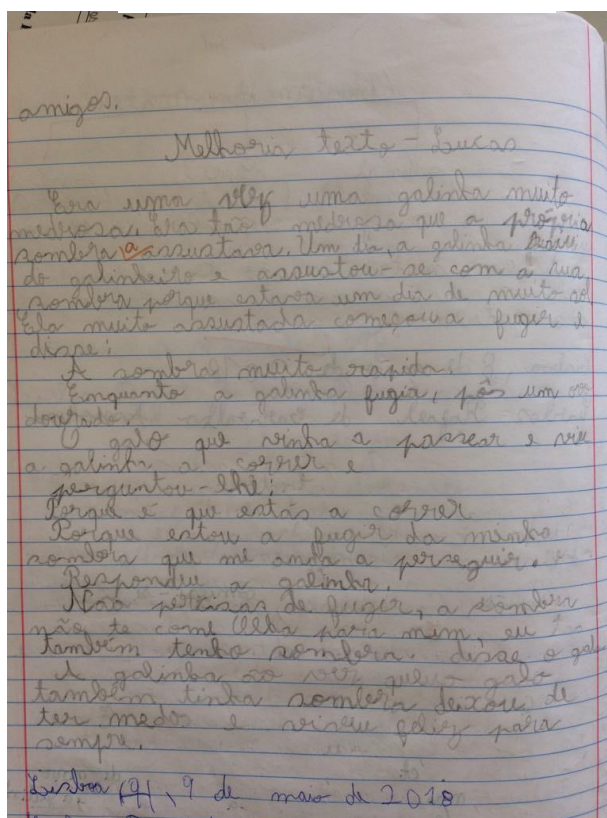 amigos.
Melhoria texto - Lucas
Era uma vez uma galinha muito
medrosa, era tão medrosa que a própria
sombra a assustava. Um dia, a galinha saiu
do galinheiro e assustou-se com a sua
sombra porque estava um dia de muito sol
Ela muito assustada começou a fugir e
disse:
A sombra muito rápida
Enquanto a galinha fugia, pôs um ovo
dourado
O galo que vinha a passear e viu
a galinha a correr e
perguntou-lhe:
Porque é que estás a correr
Porque estou a fugir da minha
sombra que me anda a perseguir.
Respondeu a galinha.
Não precisas de fugir, a sombra
não te come Olha para mim, eu
também tenho sombra. disse o galo
A galinha ao ver que o galo
também tinha sombra deixou de
ter medo e viveu feliz para
sempre.
Lisboa, 9 de maio de 2018